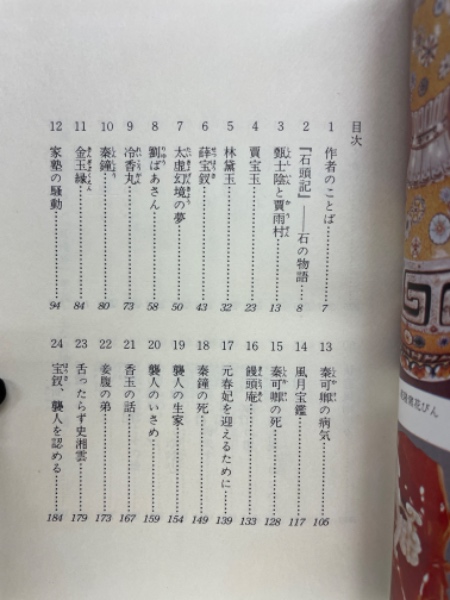 目次
1 作者のことば 7
2 『石頭記』――石の物語 8
3 甄士隠と賈雨村 13
4 賈宝玉 23
5 林黛玉 32
6 薛宝釵 43
7 太虚幻境の夢 50
8 劉ばあさん 58
9 冷香丸 73
10 秦鐘 80
11 金玉縁 84
12 家塾の騒動 94
13 秦可卿の病気 105
14 風月宝鑑 117
15 秦可卿の死 128
16 饅頭庵 133
17 元春妃を迎えるために 139
18 秦鐘の死 149
19 襲人の生家 154
20 襲人のいさめ 159
21 香玉の話 167
22 妾腹の弟 173
23 舌ったらず史湘雲 179
24 宝釵、襲人を認める 184
花びん